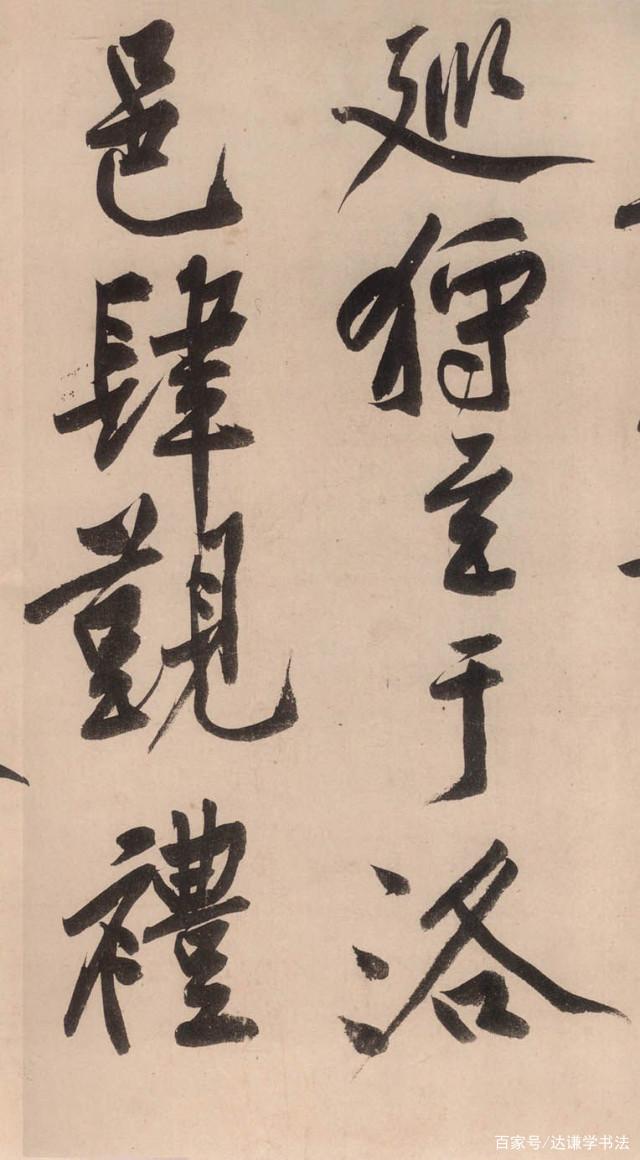 廵狩至于洛
邑肆覲禮
百家号/达谦学书法